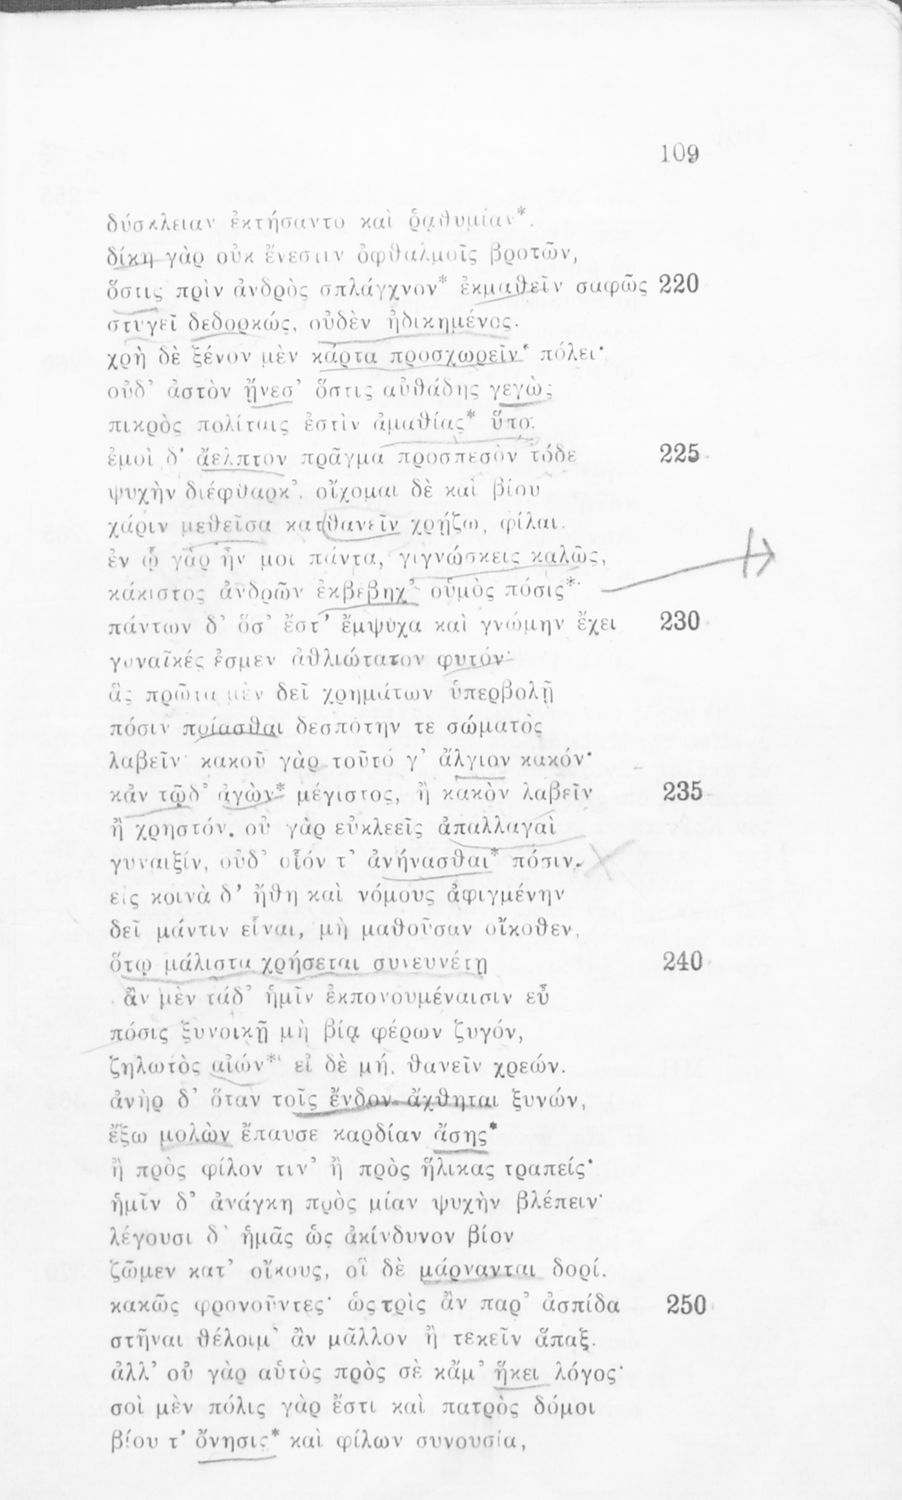 109
δύσκλειαν ἐκτήσαντο καὶ ῥᾳθυμίαν*.
δίκη γὰρ οὐκ ἔνεστιν ὀφθαλμοῖς βροτῶν,
ὅστις πρὶν ἀνδρὸς σπλάγχνον* ἐκμαθεῖν σαφῶς 220
στυγεῖ δεδορκώς, οὐδὲν ἠδικημένος.
χρὴ δὲ ξένον μὲν κάρτα προσχωρεῖν* πόλει·
οὐδ' ἀστὸν ᾔνεσ' ὅστις αὐθάδης γεγὼς
πικρὸς πολίταις ἐστὶν ἀμαθίας* ὕπο.
ἐμοὶ δ' ἄελπτον πρᾶγμα προσπεσὸν τόδε 225
ψυχὴν διέφθαρκ'. οἴχομαι δὲ καὶ βίου
χάριν μεθεῖσα κατθανεῖν χρῄζω, φίλαι.
ἐν ᾧ γὰρ ἦν μοι πάντα, γιγνώσκεις καλῶς,
κάκιστος ἀνδρῶν ἐκβέβηχ' οὑμὸς πόσις*·
πάντων δ' ὅσ' ἔστ' ἔμψυχα καὶ γνώμην ἔχει 230
γυναῖκές ἐσμεν ἀθλιώτατον φυτόν·
ἃς πρῶτα μὲν δεῖ χρημάτων ὑπερβολῇ
πόσιν πρίασθαι δεσπότην τε σώματος
λαβεῖν· κακοῦ γὰρ τοῦτό γ' ἄλγιον κακόν·
κἀν τῷδ' ἀγὼν* μέγιστος, ἢ κακὸν λαβεῖν 235
ἢ χρηστόν. οὐ γὰρ εὐκλεεῖς ἀπαλλαγαὶ
γυναιξίν, οὐδ' οἷόν τ' ἀνήνασθαι* πόσιν.
εἰς κοινὰ δ' ἤθη καὶ νόμους ἀφιγμένην
δεῖ μάντιν εἶναι, μὴ μαθοῦσαν οἴκοθεν,
ὅτῳ μάλιστα χρήσεται συνευνέτῃ 240
ἂν μὲν τάδ' ἡμῖν ἐκπονουμέναισιν εὖ
πόσις ξυνοικῇ μὴ βίᾳ φέρων ζυγόν,
ζηλωτὸς αἰών*· εἰ δὲ μή, θανεῖν χρεών.
ἀνὴρ δ' ὅταν τοῖς ἔνδον ἄχθηται ξυνών,
ἔξω μολὼν ἔπαυσε καρδίαν ἄσης*
ἢ πρὸς φίλον τιν' ἢ πρὸς ἥλικας τραπείς·
ἡμῖν δ' ἀνάγκη πρὸς μίαν ψυχὴν βλέπειν·
λέγουσι δ' ἡμᾶς ὡς ἀκίνδυνον βίον
ζῶμεν κατ' οἴκους, οἳ δὲ μάρνανται δορί.
κακῶς φρονοῦντες· ὡς τρὶς ἂν παρ' ἀσπίδα 250
στῆναι θέλοιμ' ἂν μᾶλλον ἢ τεκεῖν ἅπαξ.
ἀλλ' οὐ γὰρ αὑτὸς πρὸς σὲ κἄμ' ἥκει λόγος·
σοὶ μὲν πόλις γὰρ ἔστι καὶ πατρὸς δόμοι
βίου τ' ὄνησις* καὶ φίλων συνουσία,